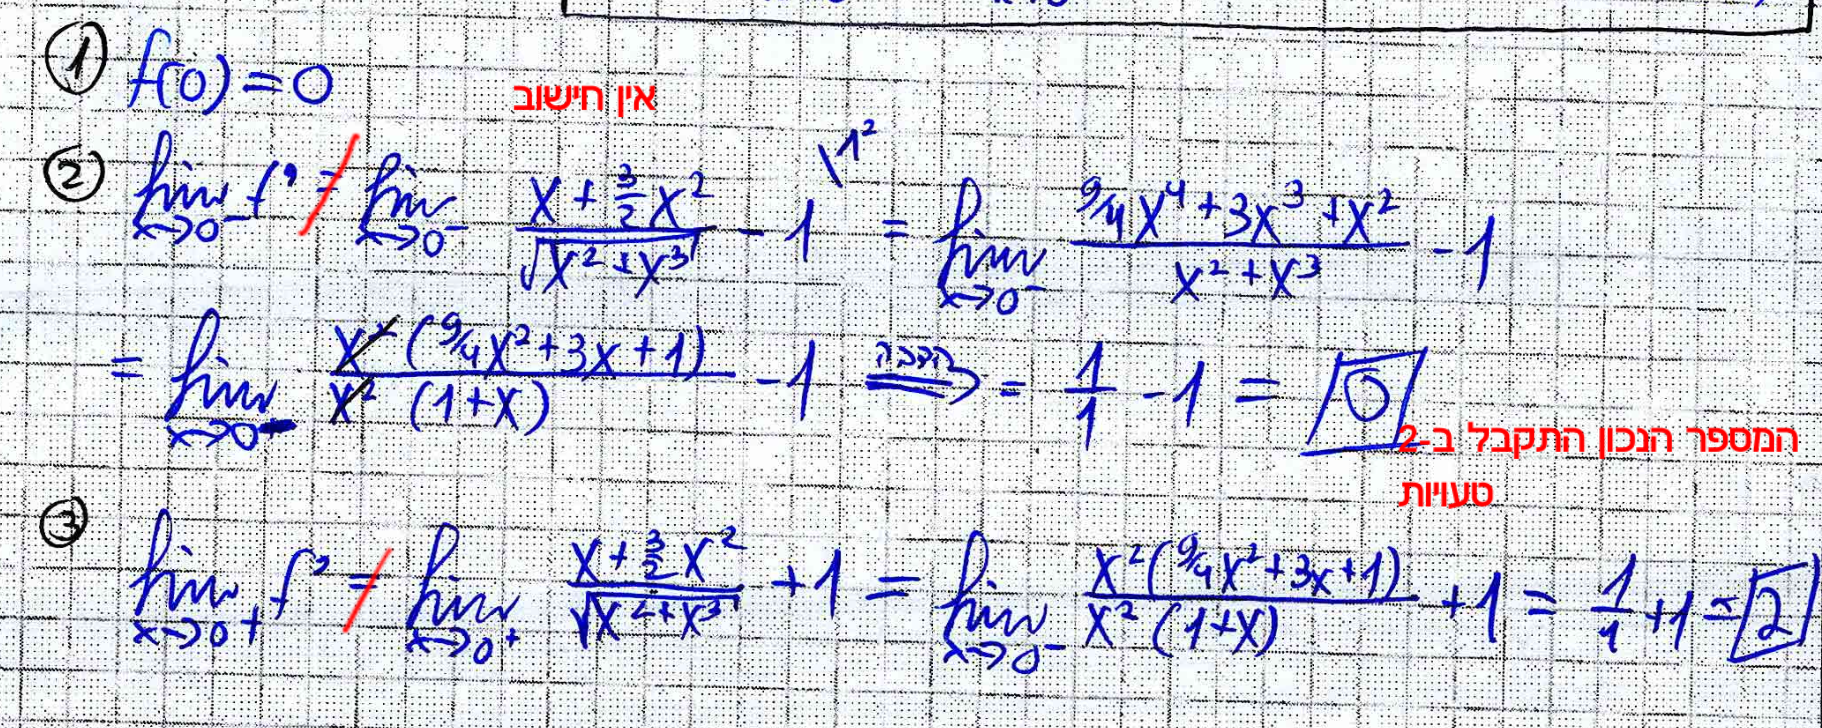 ① f(0) = 0
אין חישוב
② lim x→0⁻ f' = lim x→0⁻ (x + 3/2 x²)/√(x² + x³) - 1 \ 1² = lim x→0⁻ (9/4 x⁴ + 3x³ + x²)/(x² + x³) - 1
= lim x→0⁻ x² (9/4 x² + 3x + 1)/x² (1 + x) - 1 הצבה ⟹ = 1/1 - 1 = 0
המספר הנכון התקבל ב-2
טעויות
③ lim x→0⁺ f' = lim x→0⁺ (x + 3/2 x²)/√(x² + x³) + 1 = lim x→0⁻ x² (9/4 x² + 3x + 1)/x² (1 + x) + 1 = 1/1 + 1 = 2